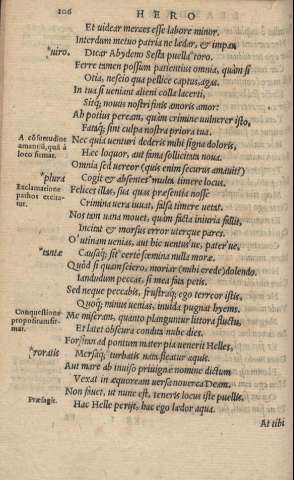 106
HERO
Et uidear merces esse labore minor.
Interdum metuo patria ne lædar, & impar
*uiro.
Dicar Abydeno Sesta puella toro.
Ferre tamen possum patientius omnia, quàm si
Otia, nescio qua pellice captus, agas.
In tua si ueniant alieni colla lacerti,
Sitq; nouus nostri finis amoris amor:
Ah potius peream, quàm crimine uulnerer isto,
Fataq; sint culpa nostra priora tua.
A cõsuetudine
amantiũ, quâ à
loco firmat.
Nec quia uenturi dederis mihi signa doloris,
Hæc loquor, aut fama sollicitata noua.
Omnia sed uereor (quis enim securus amauit?)
*plura
Cogit & absentes* multa timere locus.
Exclamatione
pathos excita-
tur.
Felices illas, sua quas præsentia nosse
Crimina uera iuuat, falsa timere uetat.
Nos tam uana mouet, quàm facta iniuria fallit,
Incitat & morsus error uterque pares.
O' utinam uenias, aut hic uentus'ue, pater'ue,
*tantæ
Causaq; sit* certè fœmina nulla moræ.
Quòd si quam sciero, moriar (mihi crede) dolendo.
Iandudum peccas, si mea fata petis.
Sed neque peccabis, frustraq; ego terreor istis,
Quoq; minus uenias, inuida pugnat hyems.
Conquestione
propositum fir-
mat.
Me miseram, quanto planguntur littora fluctu,
Et latet obscura condita nube dies.
Forsitan ad pontum mater pia uenerit Helles,
*roratis
Mersaq;* turbatis nata fleatur aquis.
An mare ab inuiso priuignæ nomine dictum
Vexat in æquoream uersa nouerca Deam.
Non fauet, ut nunc est, teneris locus iste puellis,
Præsagit.
Hac Helle perijt, hac ego lædor aqua.
At tibi